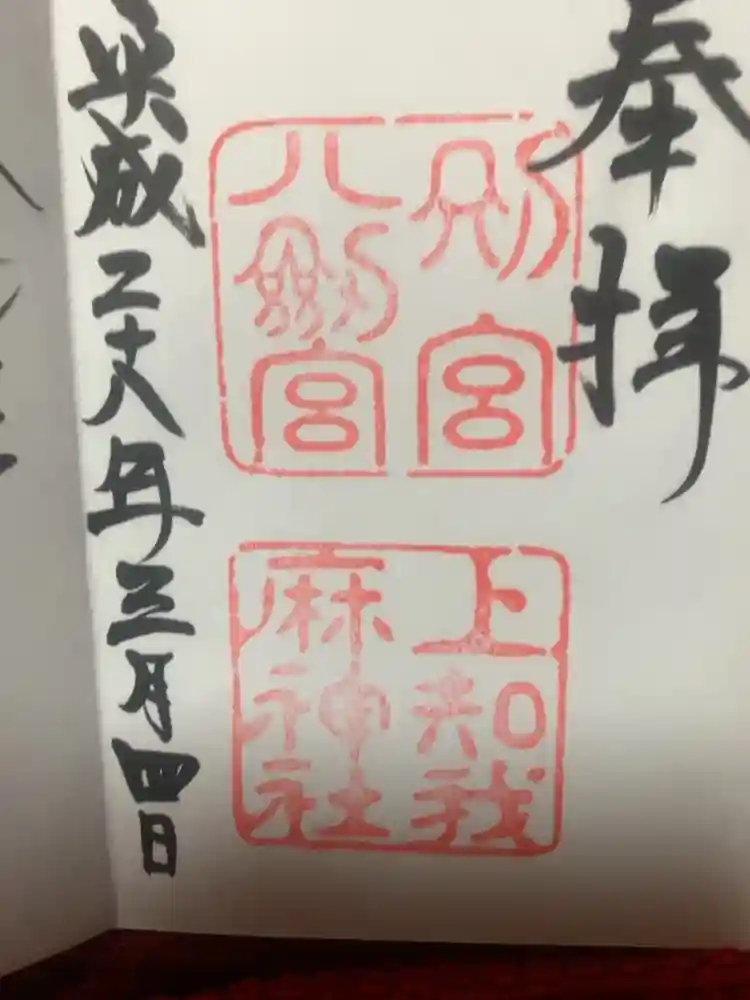 奉拝
別宮
八劔宮
上知我
麻神社
平成二十八年三月四日